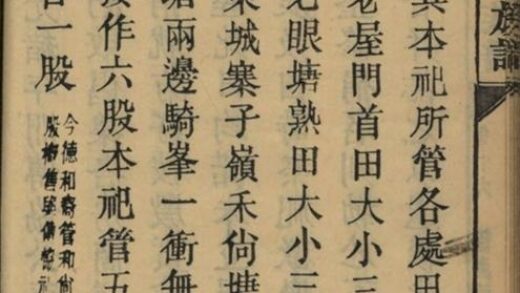 族譜
其本祀所管各處田
老屋門首田大小三
七眼塘熟田大小三
東城寨子嶺禾尙塘
塘兩邊騎峯一衝無
按作六股本祀管五
各一股
今德和裔管和尙